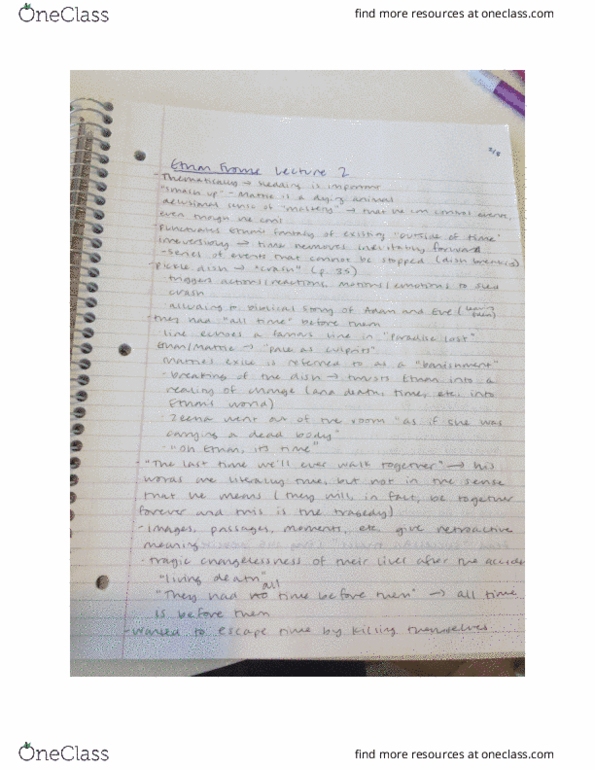 OneClass
find more resources at oneclass.com
3/8
Ethan Frome Lecture 2
- Thematically → sledding is important
"smash up" - Mattie is a dying animal
delusional sense of "mastery" → that he can control events,
even though he can't
- Punctuates Ethan's fantasy of existing "outside of time"
irreversibility → time removes inevitably forward
- series of events that cannot be stopped (dish breaking)
- Pickle dish → "crash" (p. 35)
- triggers actions/reactions, motions/emotions to sled
crash
- alluding to biblical story of Adam and Eve (leaving Eden)
- they had "all time" before them
- line echoes a famous line in "Paradise Lost"
- Ethan/Mattie → "pale as culprits"
- Mattie's exile is referred to as a "banishment"
- breaking of the dish → thrusts Ethan into a
reality of change (and death, time, etc. into
Ethan's world)
- Zeena went out of the room "as if she was
carrying a dead body"
- "oh Ethan, it's time"
- "The last time we'll ever walk together" → his
words are literally true, but not in the sense
that he means (they will, in fact, be together
forever and this is the tragedy)
- Images, passages, moments, etc. give retroactive
meaning
- tragic changelessness of their lives after the accident
"living death"
all
"They had no time before them" → all time
is before them
- Wanted to escape time by killing themselves
OneClass
find more resources at oneclass.com